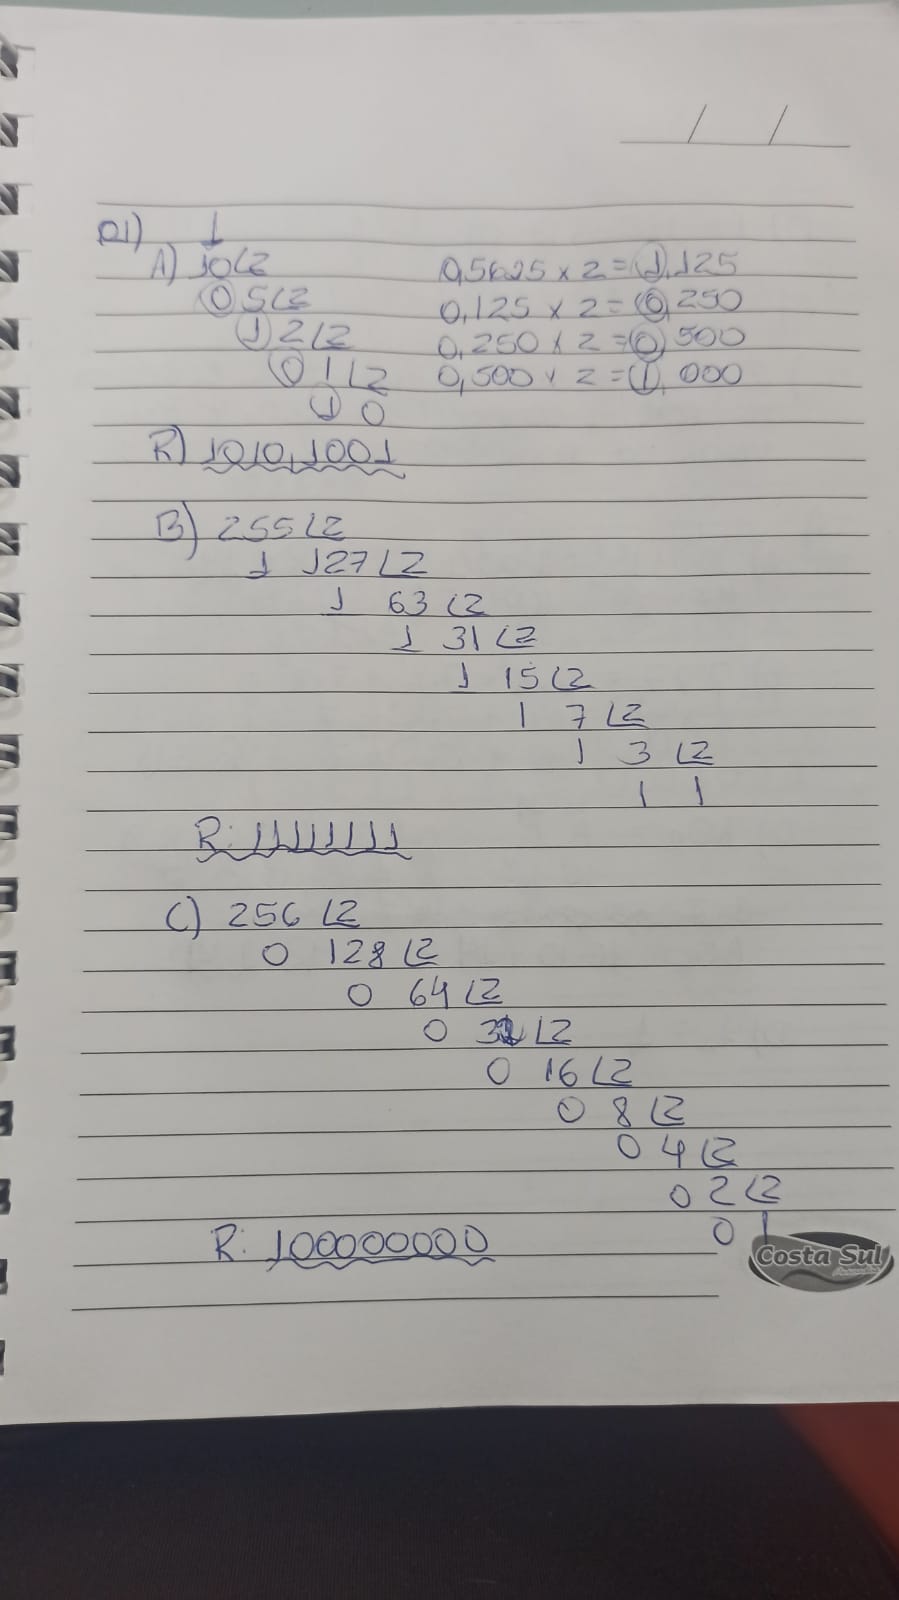 01)
A) 10∟2
0 5∟2
1 2∟2
0 1∟2
1 0
0,5625 x 2 = 1,125
0,125 x 2 = 0,250
0,250 x 2 = 0,500
0,500 x 2 = 1,000
R) 1010,1001
B) 255∟2
1 127∟2
1 63∟2
1 31∟2
1 15∟2
1 7∟2
1 3∟2
1 1
R: 11111111
C) 256∟2
0 128∟2
0 64∟2
0 32∟2
0 16∟2
0 8∟2
0 4∟2
0 2∟2
0 1
R: 100000000
Costa Sul